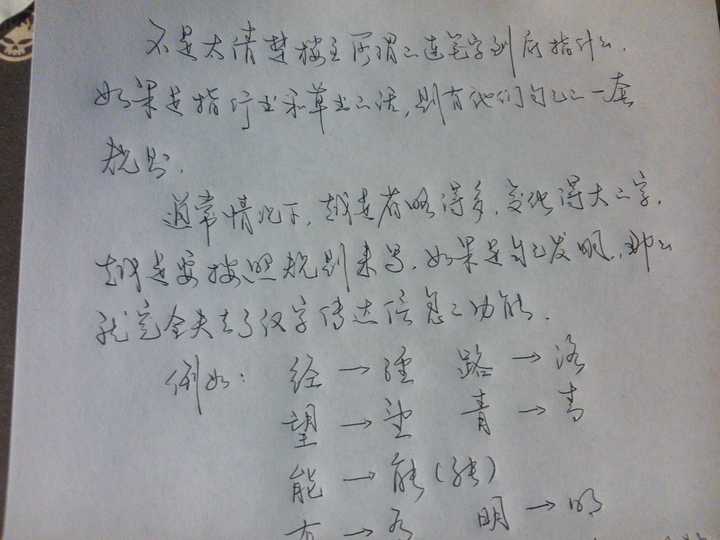 不是太清楚楼主所谓之连笔字到底指什么.
如果是指行书和草书之话,则有他们自己之一套
规则.
通常情况下,越是省略得多,变化得大之字,
越是要按照规则来写.如果是自己发明,那么
就完全失去了汉字传达信息之功能.
例如: 经→經 路→路
望→望 青→青
能→能(能)
方→方 明→明